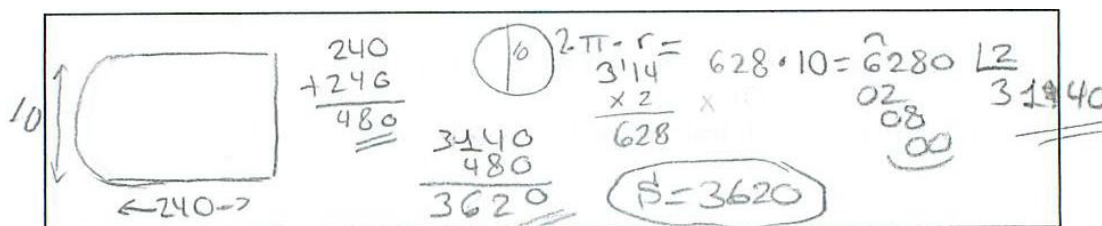 10
←240→
240
+240
480
3140
480
3620
10
2·π·r=
3'14
x 2
628
x
628·10=6280 L2
02
08
00
3140
S=3620